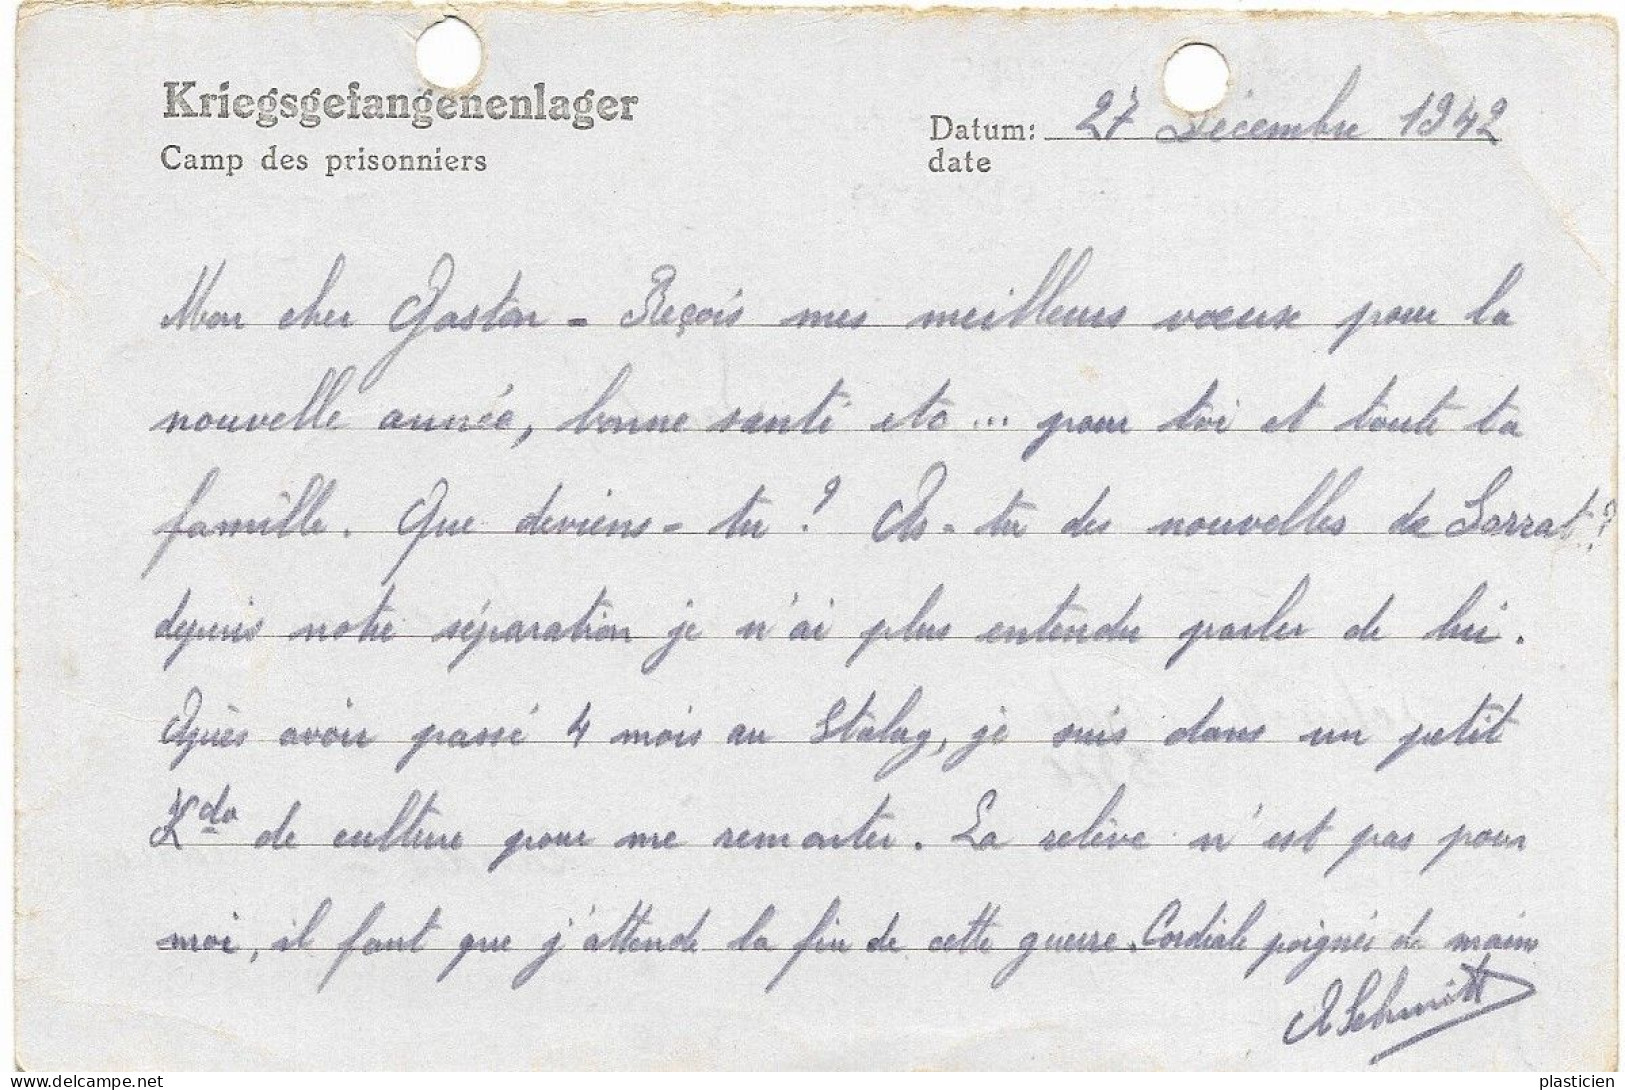 Kriegsgefangenenlager
Camp des prisonniers
Datum: 27 Décembre 1942
date
Mon cher Gaston - Reçois mes meilleurs vœux pour la
nouvelle année, bonne santé etc... pour toi et toute ta
famille. Que deviens-tu ? As-tu des nouvelles de Sarrat ?
depuis notre séparation je n'ai plus entendu parler de lui.
Après avoir passé 4 mois au Stalag, je suis dans un petit
Kdo de culture pour me remonter. La relève n'est pas pour
moi, il faut que j'attende la fin de cette guerre. Cordiale poignée de mains
A Schmitt
delcampe.net
plasticien